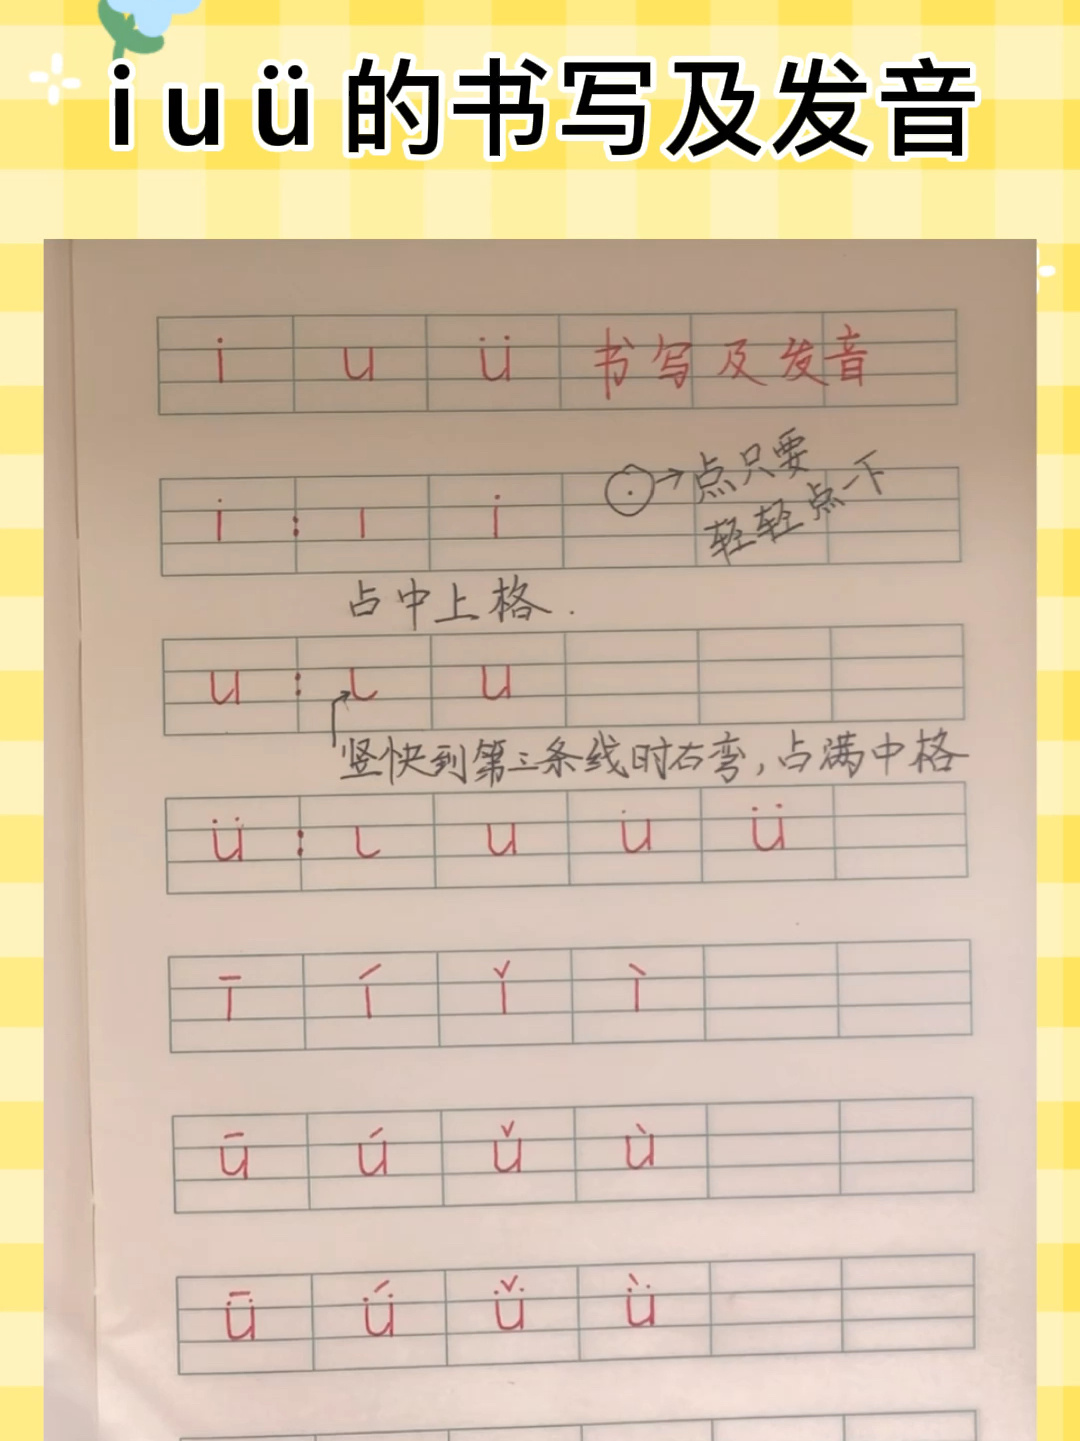 i u ü 的书写及发音
i u ü 书写及发音
点只要
轻轻点一下
i : ı i
占中上格.
u : ㇄ u
竖快到第三条线时右弯,占满中格
ü : ㇄ u u̇ ü
ī í ǐ ì
ū ú ǔ ù
ǖ ǘ ǚ ǜ